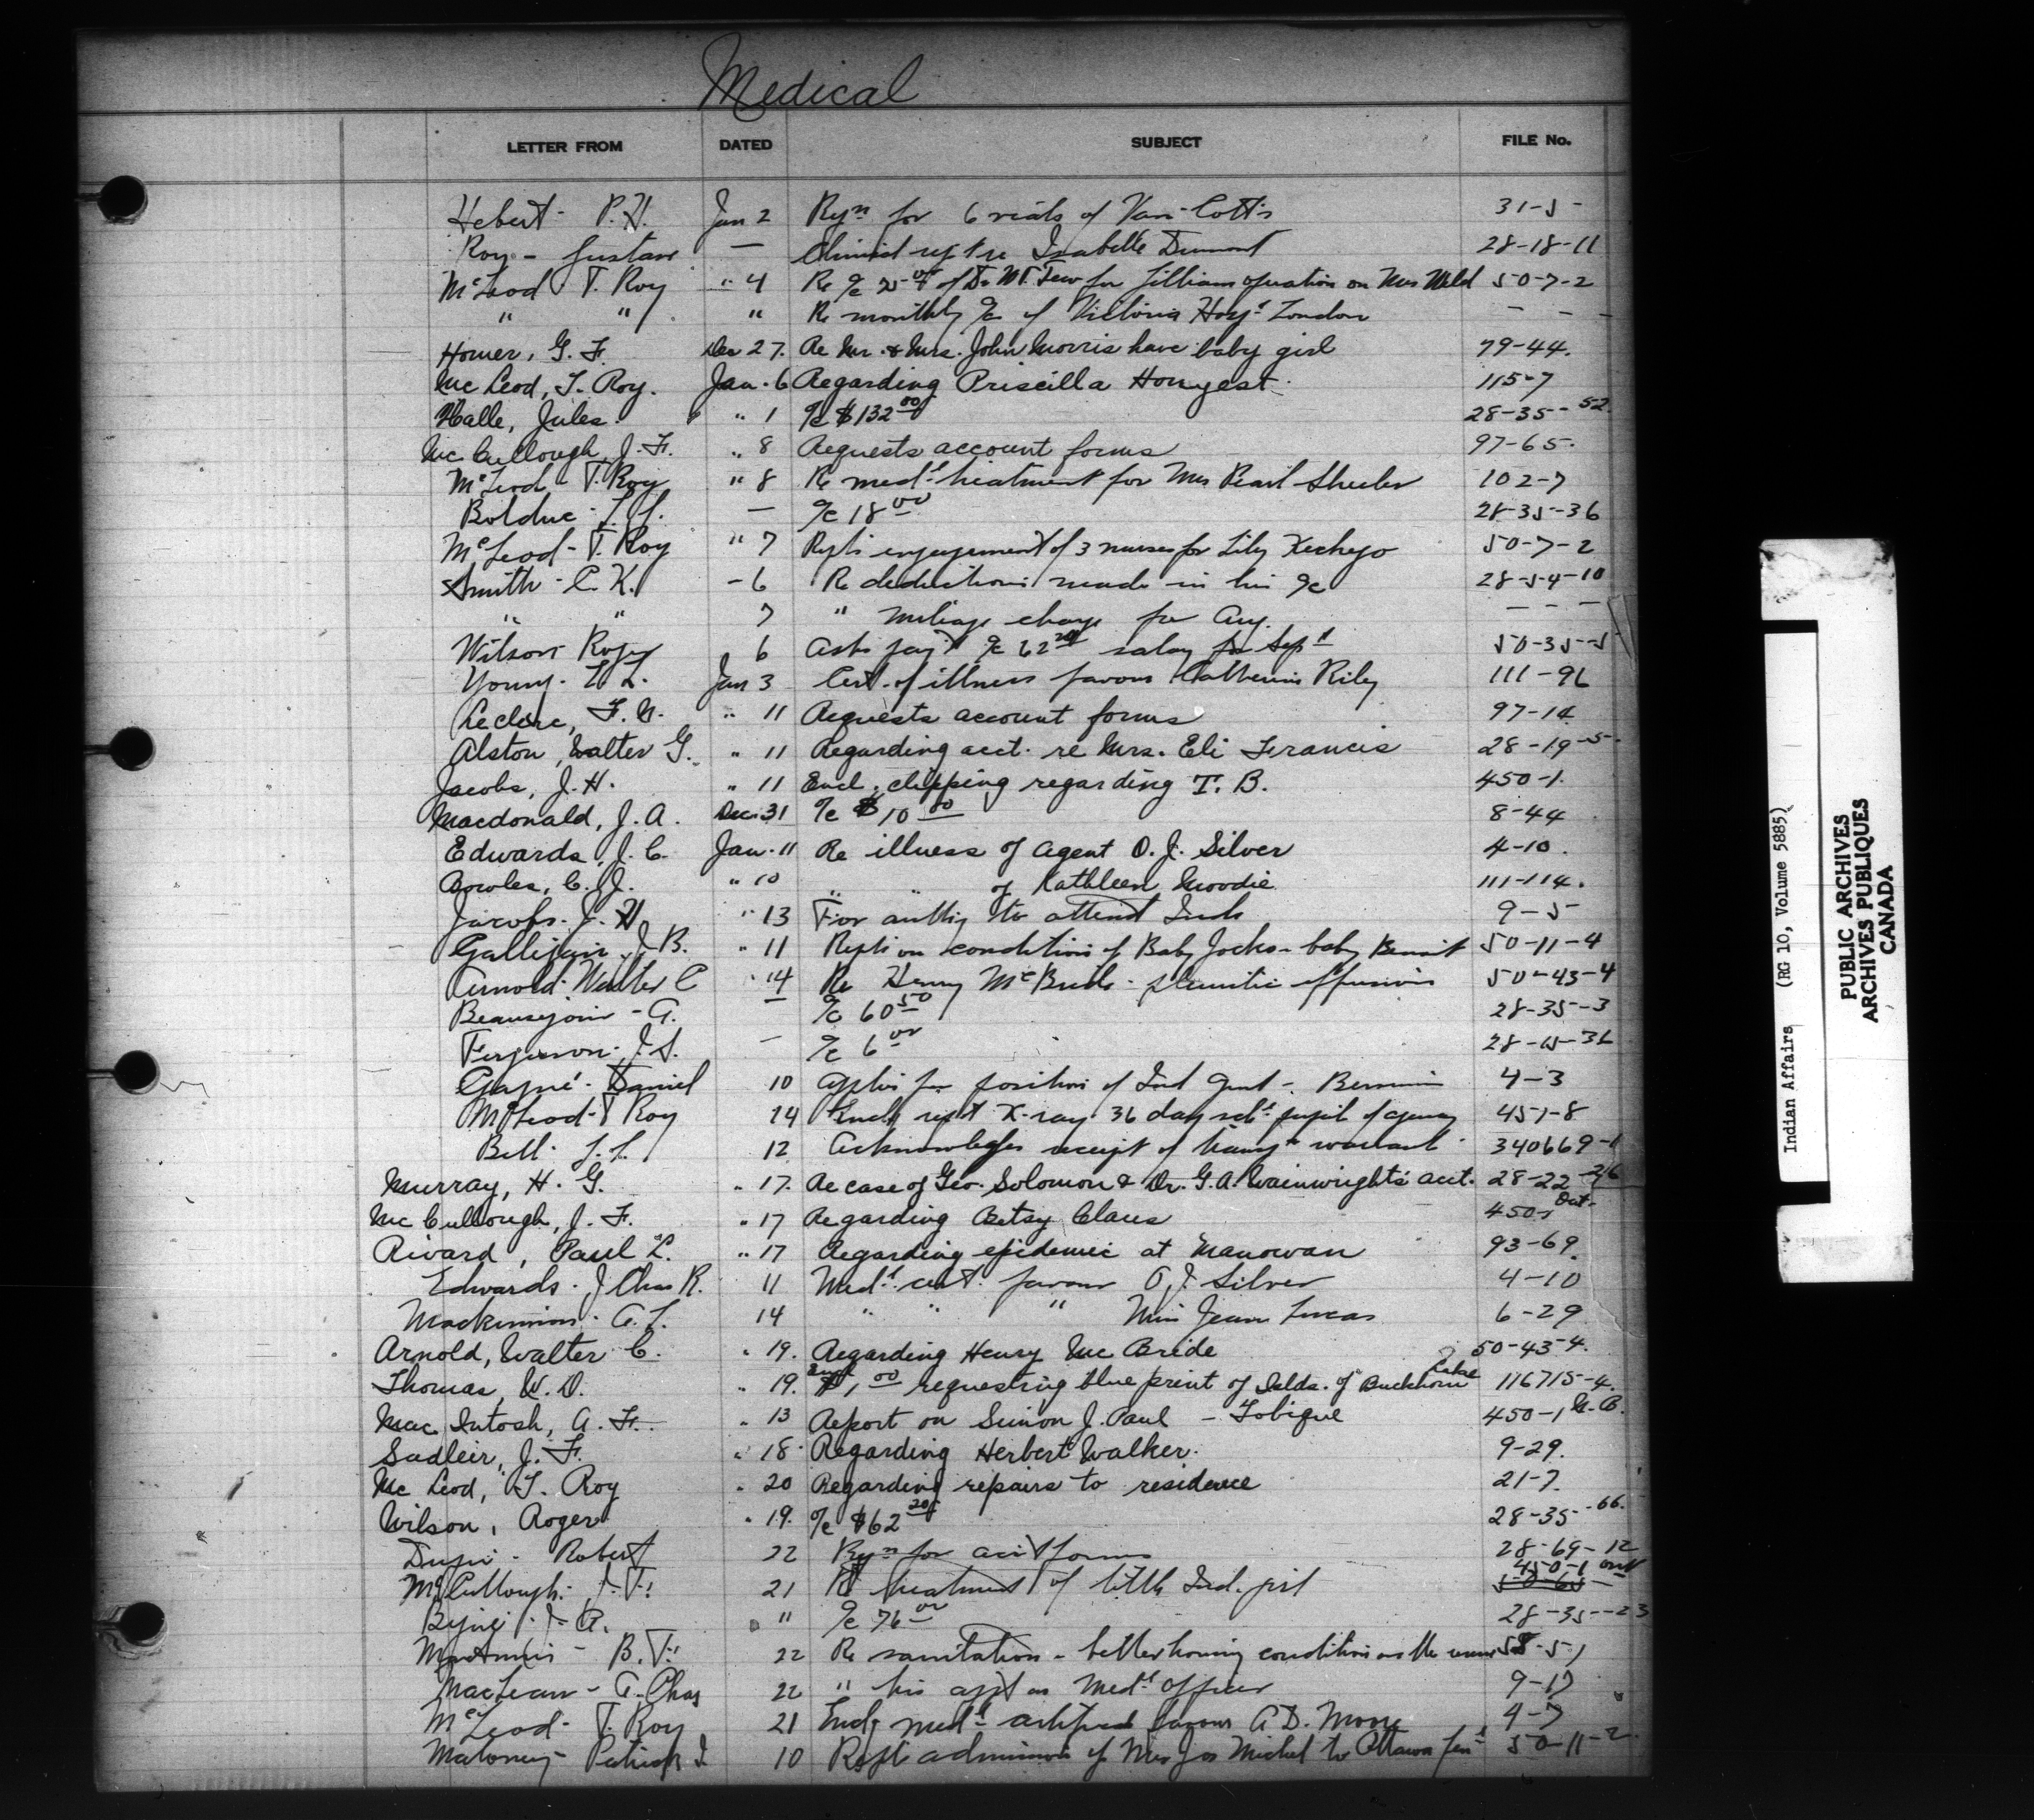 Medical
LETTER FROM DATED SUBJECT FILE No.
Hebert - P.H. Jan 2 Rqn for 6 vials of Van-Cott's 31-5-
Roy - Gustave — Clinical rept re Isabelle Dumont 28-18-11
McLeod T. Roy " 4 Re a/c of Dr for operation on Mrs 50-7-2
" " " Re monthly a/c of Victoria Hosp London - - -
Homer, G. F. Dec 27. Re Mr. & Mrs. John Morris have baby girl 79-44.
McLeod, T. Roy. Jan. 6 Regarding Priscilla Honyest. 115-7
Halle, Jules. " 1 a/c $132 00 28-35-52.
McCullough, J. F. " 8 Requests account forms 97-65.
McLeod - T. Roy " 8 Re medl treatment for Mrs Pearl Sheeler 102-7
Bolduc - — a/c 18 00 28-35-36
McLeod - T. Roy " 7 Repts engagement of 3 nurses for Lily Kechego 50-7-2
Smith - C. K. - 6 Re deductions made in his a/c 28-54-10
" " 7 " mileage charge for Aug. - - -
Wilson Roger 6 Asks payt a/c 62 20 salary for Sept 50-35-5
Young - Jan 3 Cert. of illness favour Catherine Riley 111-96
Leclerc, F. Jan " 11 Requests account forms 97-14
Alston, Walter G. " 11 Regarding acct. re Mrs. Eli Francis 28-19-5.
Jacobs, J. H. " 11 Encl. clipping regarding T. B. 450-1.
Macdonald, J. A. Dec. 31 a/c $ 10 00 8-44
Edwards, J. C. Jan. 11 Re illness of Agent O. J. Silver 4-10.
Bowles, C. J. " 10 " " of Kathleen Moodie 111-114.
Jacobs - J. H. " 13 For authy to attend Inds 9-5
Galligan, J. B. " 11 Repts on condition of Baby Jocko - baby Benoit 50-11-4
Arnold - Walter C " 14 Re Henry McBride - pleuritic effusion 50-43-4
Beausejour - A. — a/c 60 50 28-35-3
Ferguson - J. S. — a/c 6 00
Gagné - Daniel 10 Applies for position of Ind Agent - Bersimis 4-3
McLeod - T Roy 14 Encl rept X-ray 36 day schl pupils of agency 451-8
Bell - 12 Acknowledges receipt of transpn warrant 340669-1
Murray, H. G. " 17. Re case of Geo. Solomon & Dr. G. A. Wainwright's acct. 28-22-26
McCullough, J. F. " 17 Regarding Betsy Claus 450-1 Ont.
Rivard, Paul L. " 17 Regarding epidemic at Manowan 93-69.
Edwards - J Chas R. 11 Medl cert. favour O. J. Silver 4-10
Mackinnon - A. L. 14 " " " Miss Jean Lucas 6-29
Arnold, Walter C. " 19. Regarding Henry McBride 50-43-4.
Thomas, W. D. " 19. Encl $1 00 requesting blue print of Islds. of Buckhorn Lake 116715-4.
MacIntosh, A. F. " 13 Report on Simon J. Paul - Tobique 450-1 N.B.
Sadleir, J. F. " 18 Regarding Herbert Walker. 9-29.
McLeod, T. Roy " 20 Regarding repairs to residence 21-7.
Wilson, Roger " 19. a/c $62 20 28-35-66.
Dupré - Robert 22 Rqn for acct forms 28-69-12
McCullough - J. F. 21 Re treatment of little Ind. girl 450-1 ont
J. A. " a/c 76 00 28-35-23
B. F. 22 Re sanitation - better housing conditions
MacLean - A. Chas 22 " his appt as Medl Officer 9-17
McLeod - T. Roy 21 Encl medl certificate favour A D. Moore 4-7
Maloney - Patrick J. 10 Repts admission of Mrs Jos Michel to Ottawa Genl 50-11-2
Indian Affairs (RG 10, Volume 5885)
PUBLIC ARCHIVES
ARCHIVES PUBLIQUES
CANADA